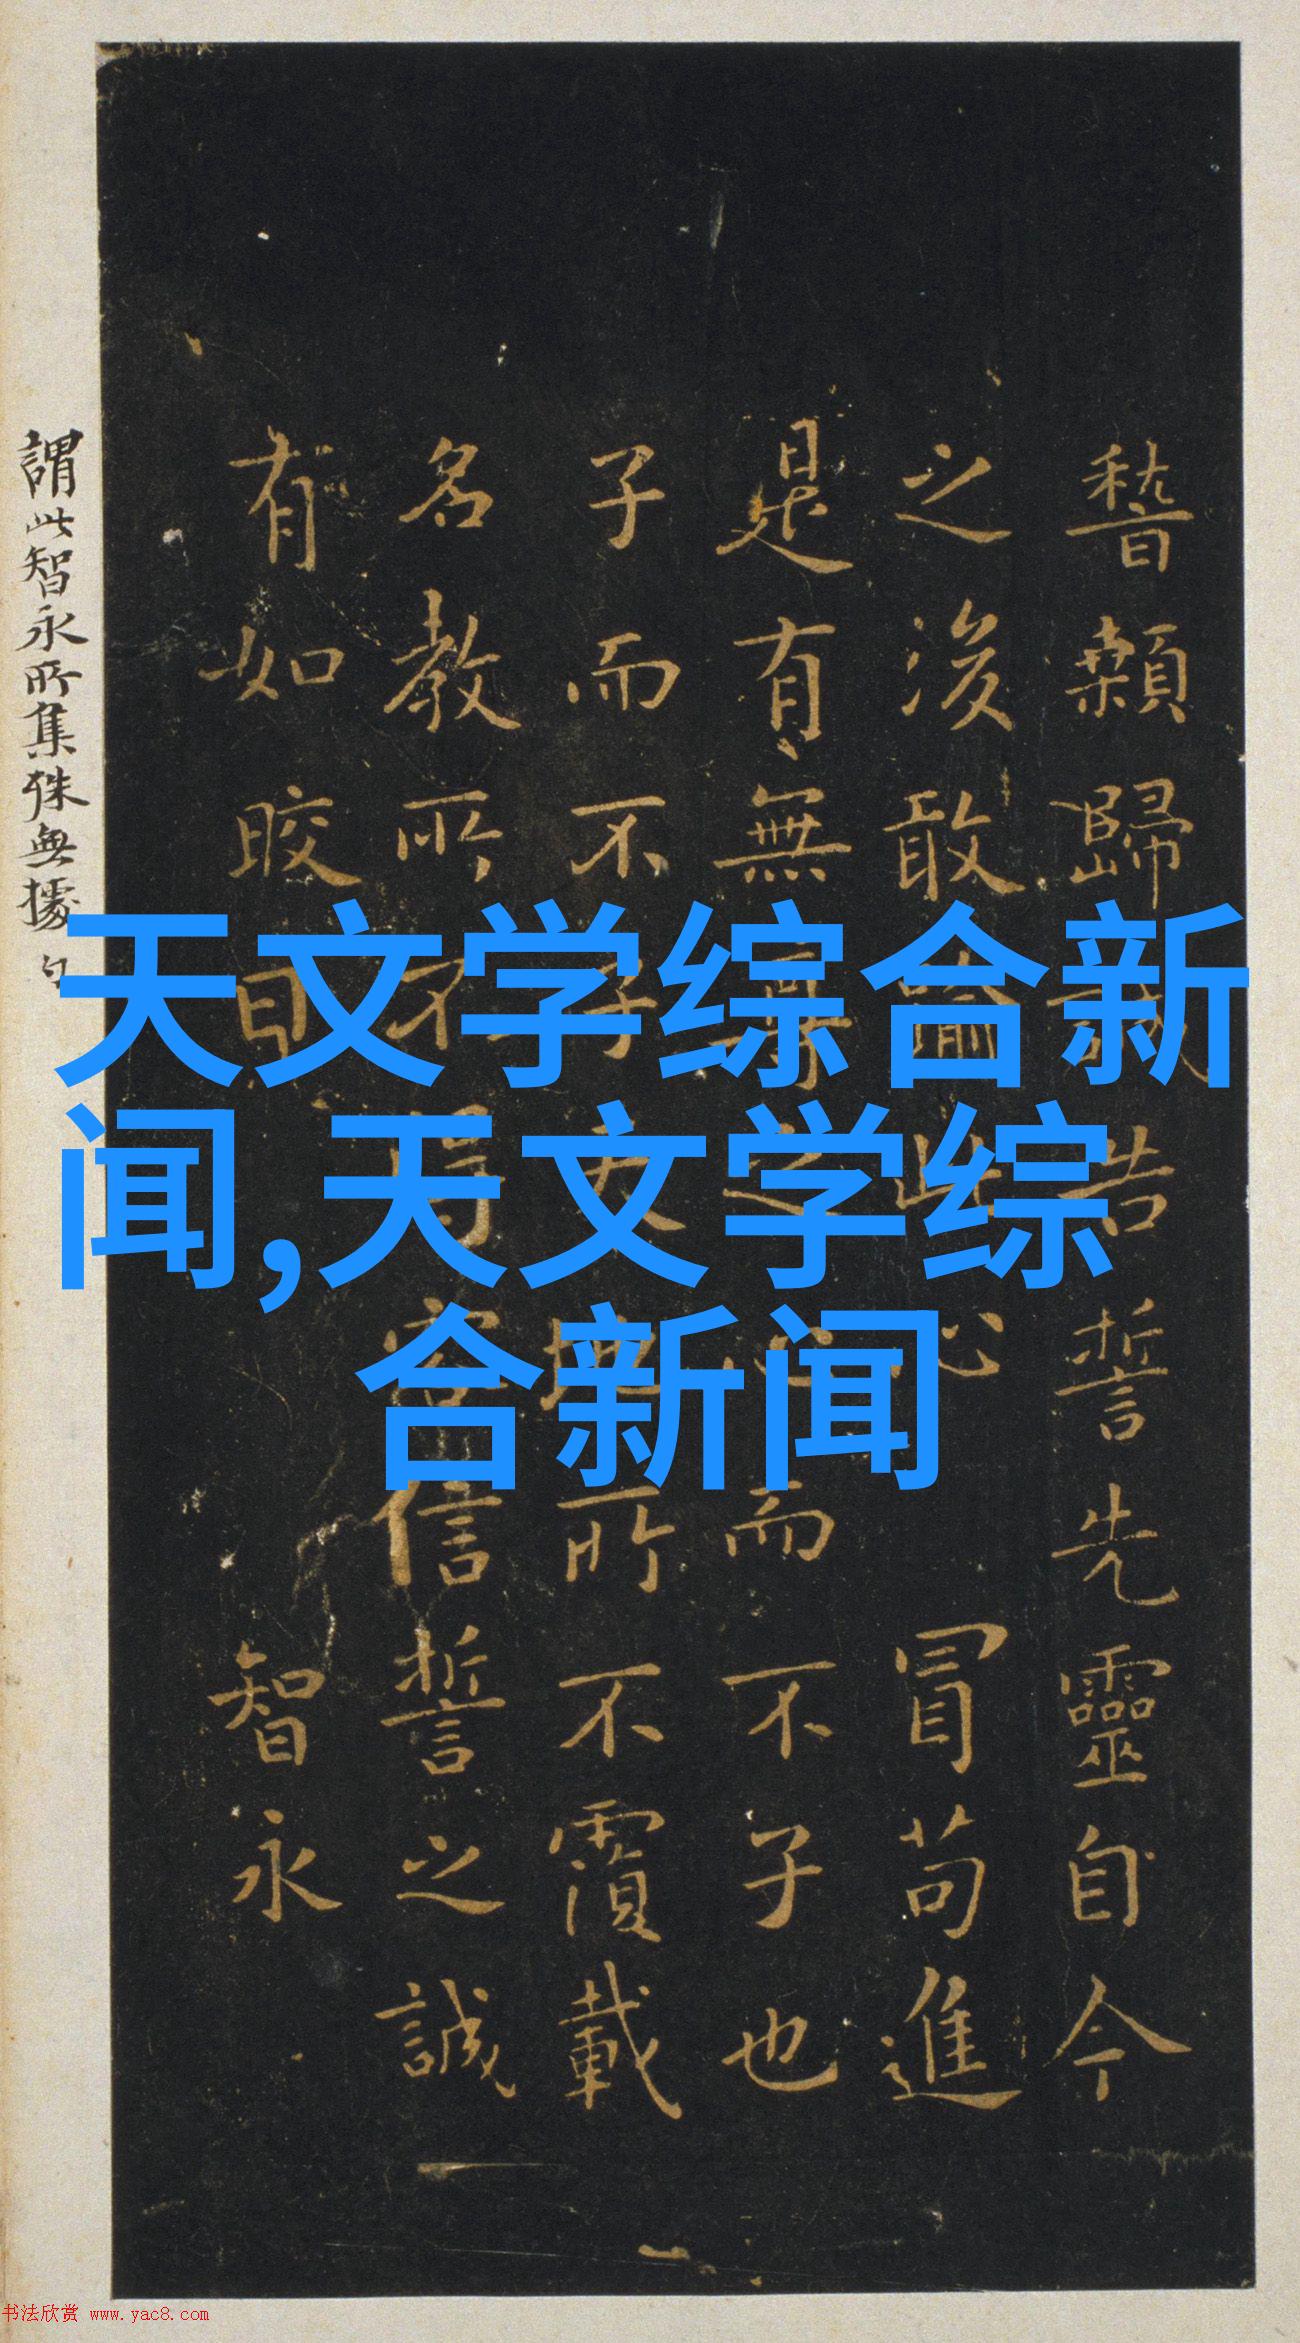 稽顙歸誠告誓先靈自今
之後敢渝此心 冒苟進
是有無尊之心而不子也
子而不子天地所不覆載
名教所不得容信誓之誠
有如皎日 智永
謂此智永所集殊無據
天文学综合新
闻,天文学综
合新闻
书法欣赏 www.yac8.com